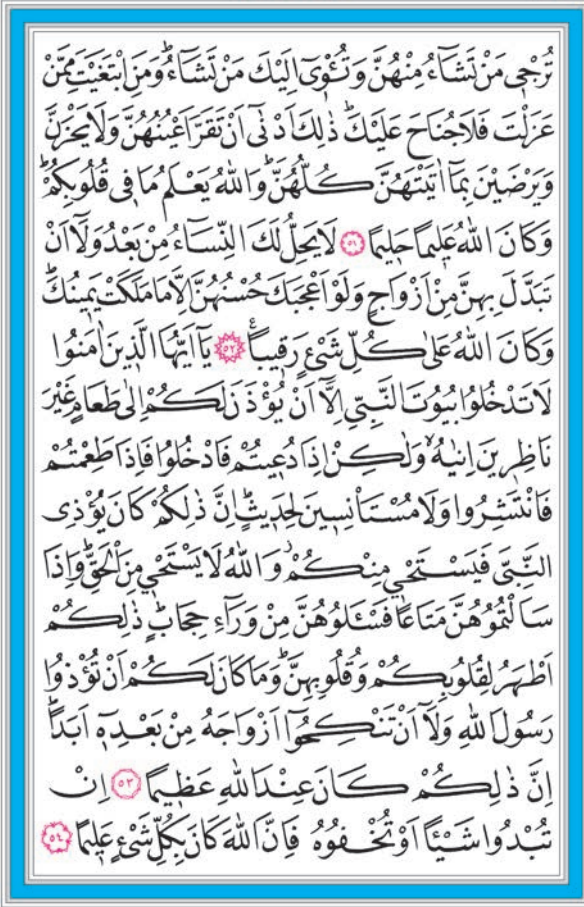 تُرْجٖى مَنْ تَشَٓاءُ مِنْهُنَّ وَتُـْٔوٖٓى اِلَيْكَ مَنْ تَشَٓاءُؕ وَمَنِ ابْتَغَيْتَ مِمَّنْ
عَزَلْتَ فَلَا جُنَاحَ عَلَيْكَؕ ذٰلِكَ اَدْنٰٓى اَنْ تَقَرَّ اَعْيُنُهُنَّ وَلَا يَحْزَنَّ
وَيَرْضَيْنَ بِمَٓا اٰتَيْتَهُنَّ كُلُّهُنَّؕ وَاللّٰهُ يَعْلَمُ مَا فٖى قُلُوبِكُمْؕ
وَكَانَ اللّٰهُ عَلٖيمًا حَلٖيمًا ﴿٥١﴾ لَا يَحِلُّ لَكَ النِّسَٓاءُ مِنْ بَعْدُ وَلَٓا اَنْ
تَبَدَّلَ بِهِنَّ مِنْ اَزْوَاجٍ وَلَوْ اَعْجَبَكَ حُسْنُهُنَّ اِلَّا مَا مَلَكَتْ يَمٖينُكَؕ
وَكَانَ اللّٰهُ عَلٰى كُلِّ شَیْءٍ رَقٖيبًاࣖ ﴿٥٢﴾ يَٓا اَيُّهَا الَّذٖينَ اٰمَنُوا
لَا تَدْخُلُوا بُيُوتَ النَّبِىِّ اِلَّٓا اَنْ يُؤْذَنَ لَكُمْ اِلٰى طَعَامٍ غَيْرَ
نَاظِرٖينَ اِنٰيهُۙ وَلٰكِنْ اِذَا دُعٖيتُمْ فَادْخُلُوا فَاِذَا طَعِمْتُمْ
فَانْتَشِرُوا وَلَا مُسْتَأْنِسٖينَ لِحَدٖيثٍؕ اِنَّ ذٰلِكُمْ كَانَ يُؤْذِى
النَّبِىَّ فَيَسْتَحْيٖ مِنْكُمْؗ وَاللّٰهُ لَا يَسْتَحْيٖ مِنَ الْحَقِّؕ وَاِذَا
سَاَلْتُمُوهُنَّ مَتَاعًا فَسْـَٔلُوهُنَّ مِنْ وَرَٓاءِ حِجَابٍؕ ذٰلِكُمْ
اَطْهَرُ لِقُلُوبِكُمْ وَقُلُوبِهِنَّؕ وَمَا كَانَ لَكُمْ اَنْ تُؤْذُوا
رَسُولَ اللّٰهِ وَلَٓا اَنْ تَنْكِحُٓوا اَزْوَاجَهُ مِنْ بَعْدِهٖٓ اَبَدًاؕ
اِنَّ ذٰلِكُمْ كَانَ عِنْدَ اللّٰهِ عَظٖيمًا ﴿٥٣﴾ اِنْ
تُبْدُوا شَيْـًٔا اَوْ تُخْفُوهُ فَاِنَّ اللّٰهَ كَانَ بِكُلِّ شَیْءٍ عَلٖيمًا ﴿٥٤﴾